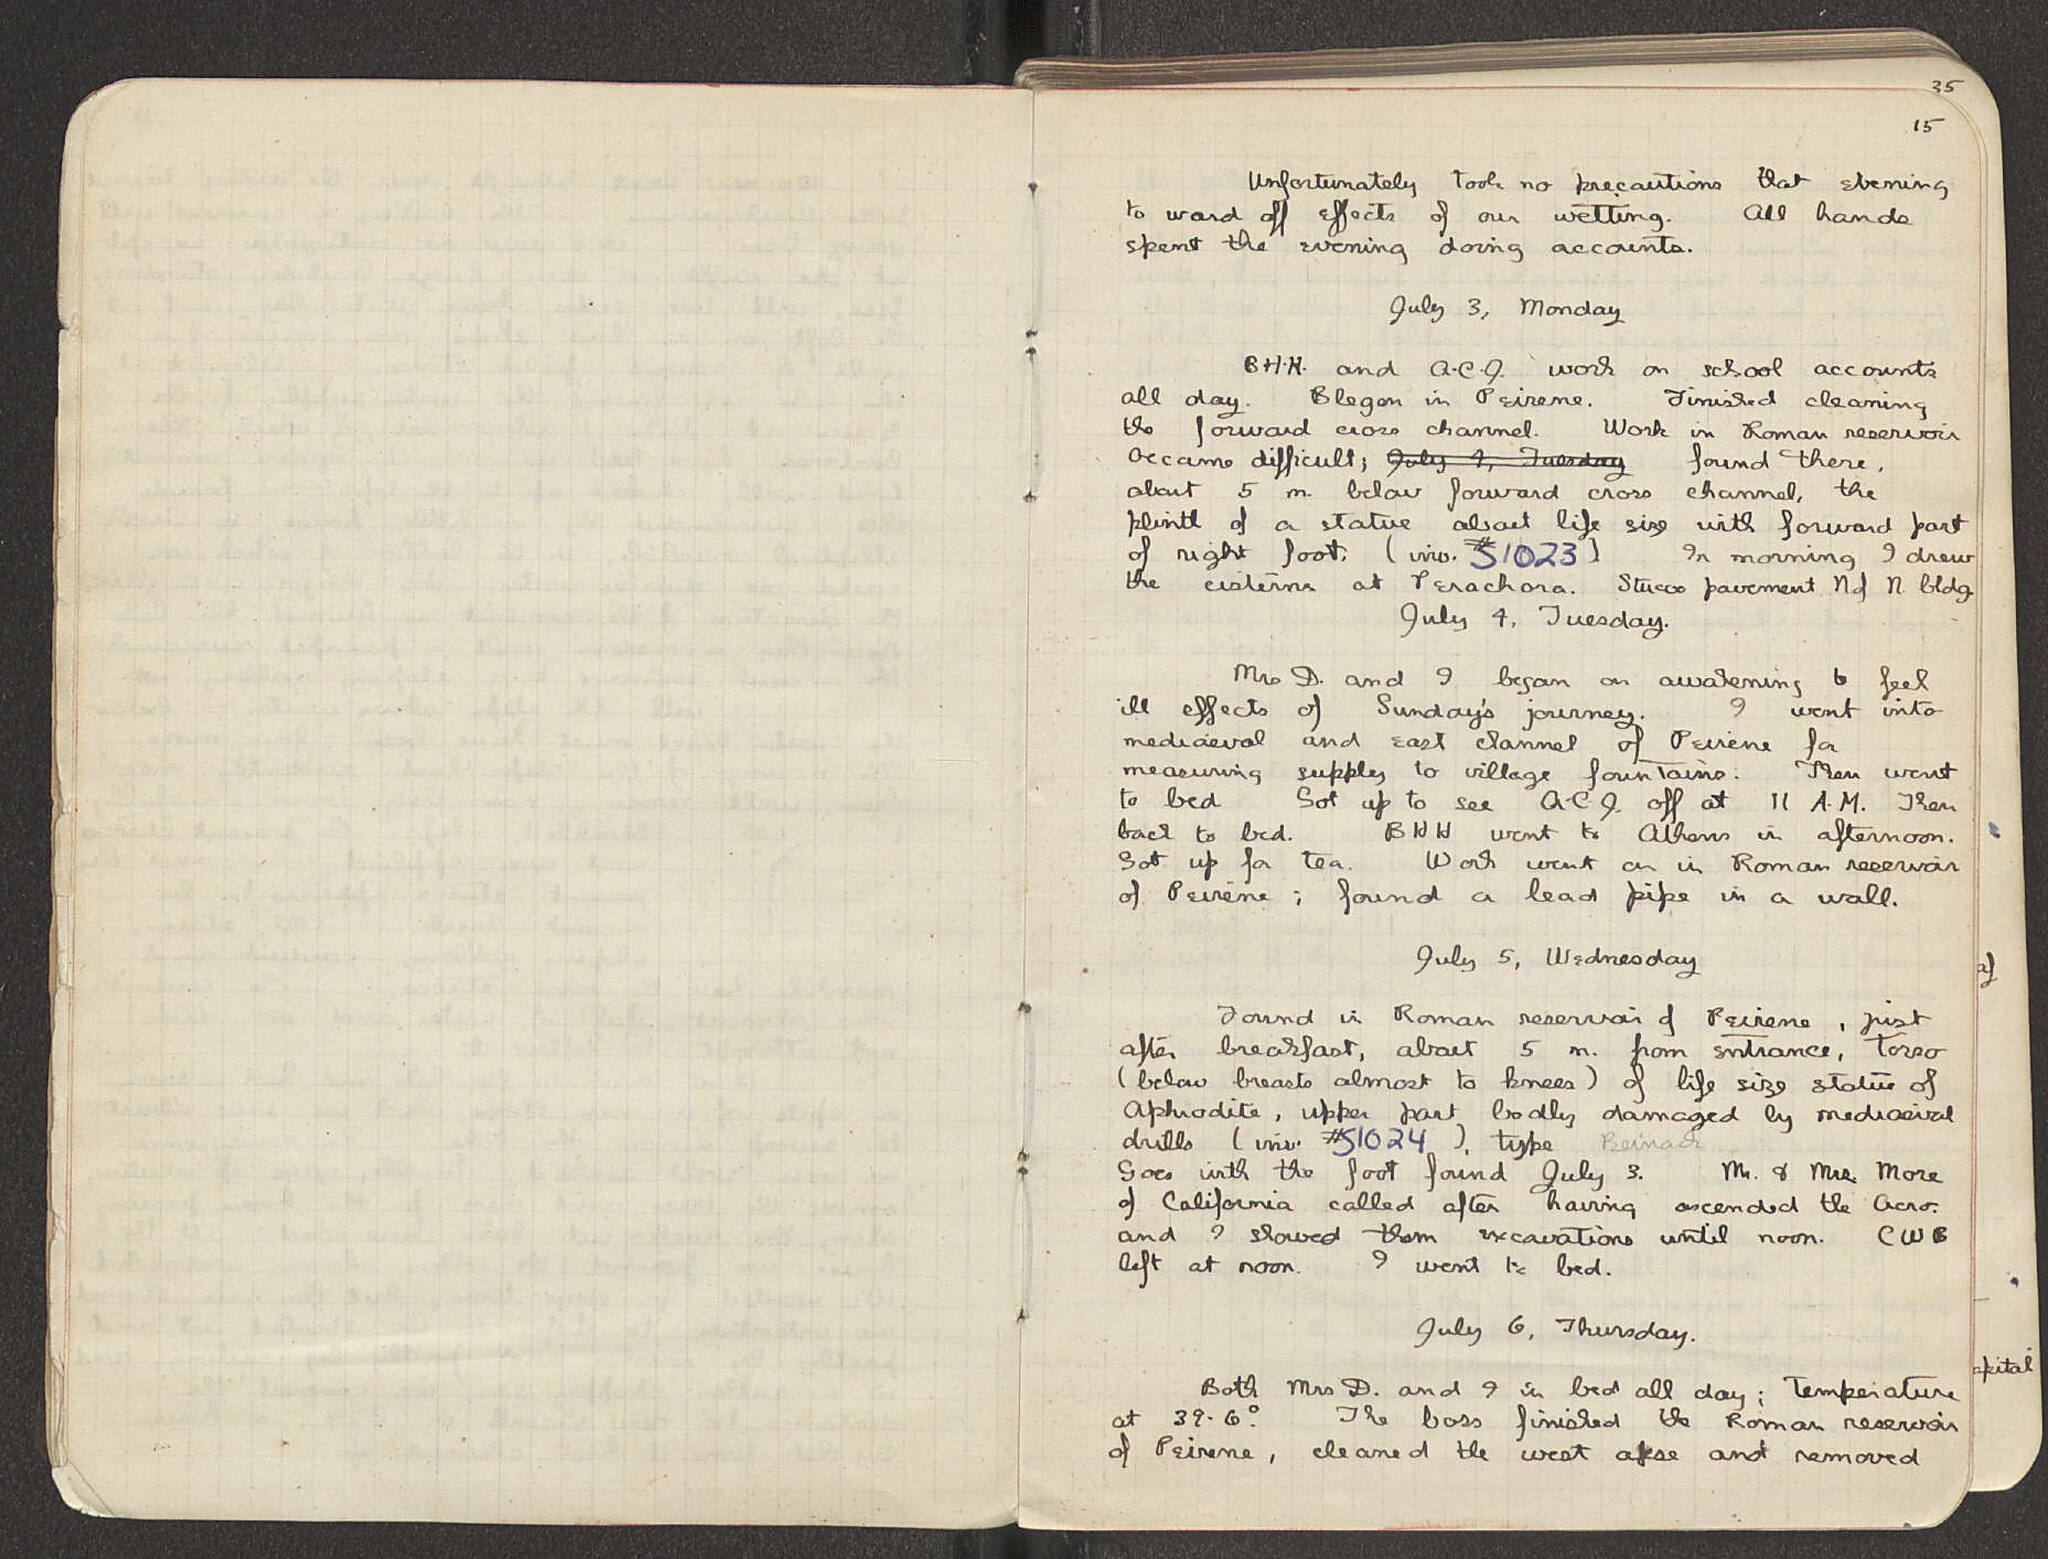 35
15
Unfortunately took no precautions that evening
to ward off effects of our wetting. All hands
spent the evening doing accounts.
July 3, Monday
B.H.H. and A.C.J. work on school accounts
all day. Blegen in Peirene. Finished cleaning
the forward cross channel. Work in Roman reservoir
became difficult; July 4, Tuesday found there,
about 5 m. below forward cross channel, the
plinth of a statue about life size with forward part
of right foot. (inv. #S1023) In morning I drew
the cisterns at Perachora. Stucco pavement N of N. bldg.
July 4, Tuesday.
Mrs D. and I began on awakening to feel
ill effects of Sunday's journey. I went into
mediaeval and east channel of Peirene for
measuring supply to village fountains. Then went
to bed Got up to see A.C.J. off at 11 A.M. Then
back to bed. BHH went to Athens in afternoon.
Got up for tea. Work went on in Roman reservoir
of Peirene; found a lead pipe in a wall.
July 5, Wednesday
Found in Roman reservoir of Peirene, just
after breakfast, about 5 m. from entrance, torso
(below breasts almost to knees) of life size statue of
Aphrodite, upper part badly damaged by mediaeval
drills (inv. #S1024), type
Goes with the foot found July 3. Mr. & Mrs. More
of California called after having ascended the Acro.
and I showed them excavations until noon. CWB
left at noon. I went to bed.
July 6, Thursday.
Both Mrs D. and I in bed all day; temperature
at 39.6°. The boss finished the Roman reservoir
of Peirene, cleaned the west apse and removed
of
apital